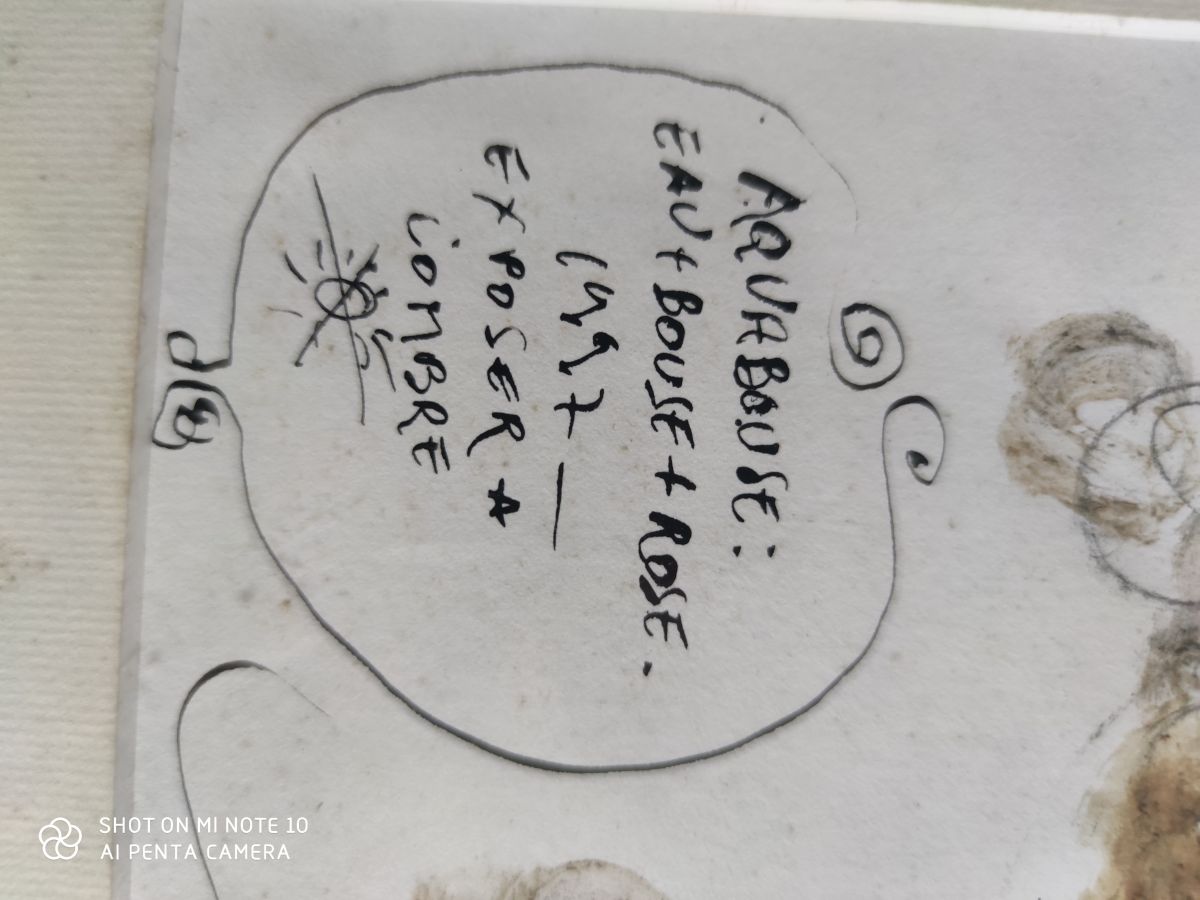 AQUABOUSE:
EAU+BOUSE+ROSE.
1997—
EXPOSER A
L'OMBRE
SHOT ON MI NOTE 10
AI PENTA CAMERA